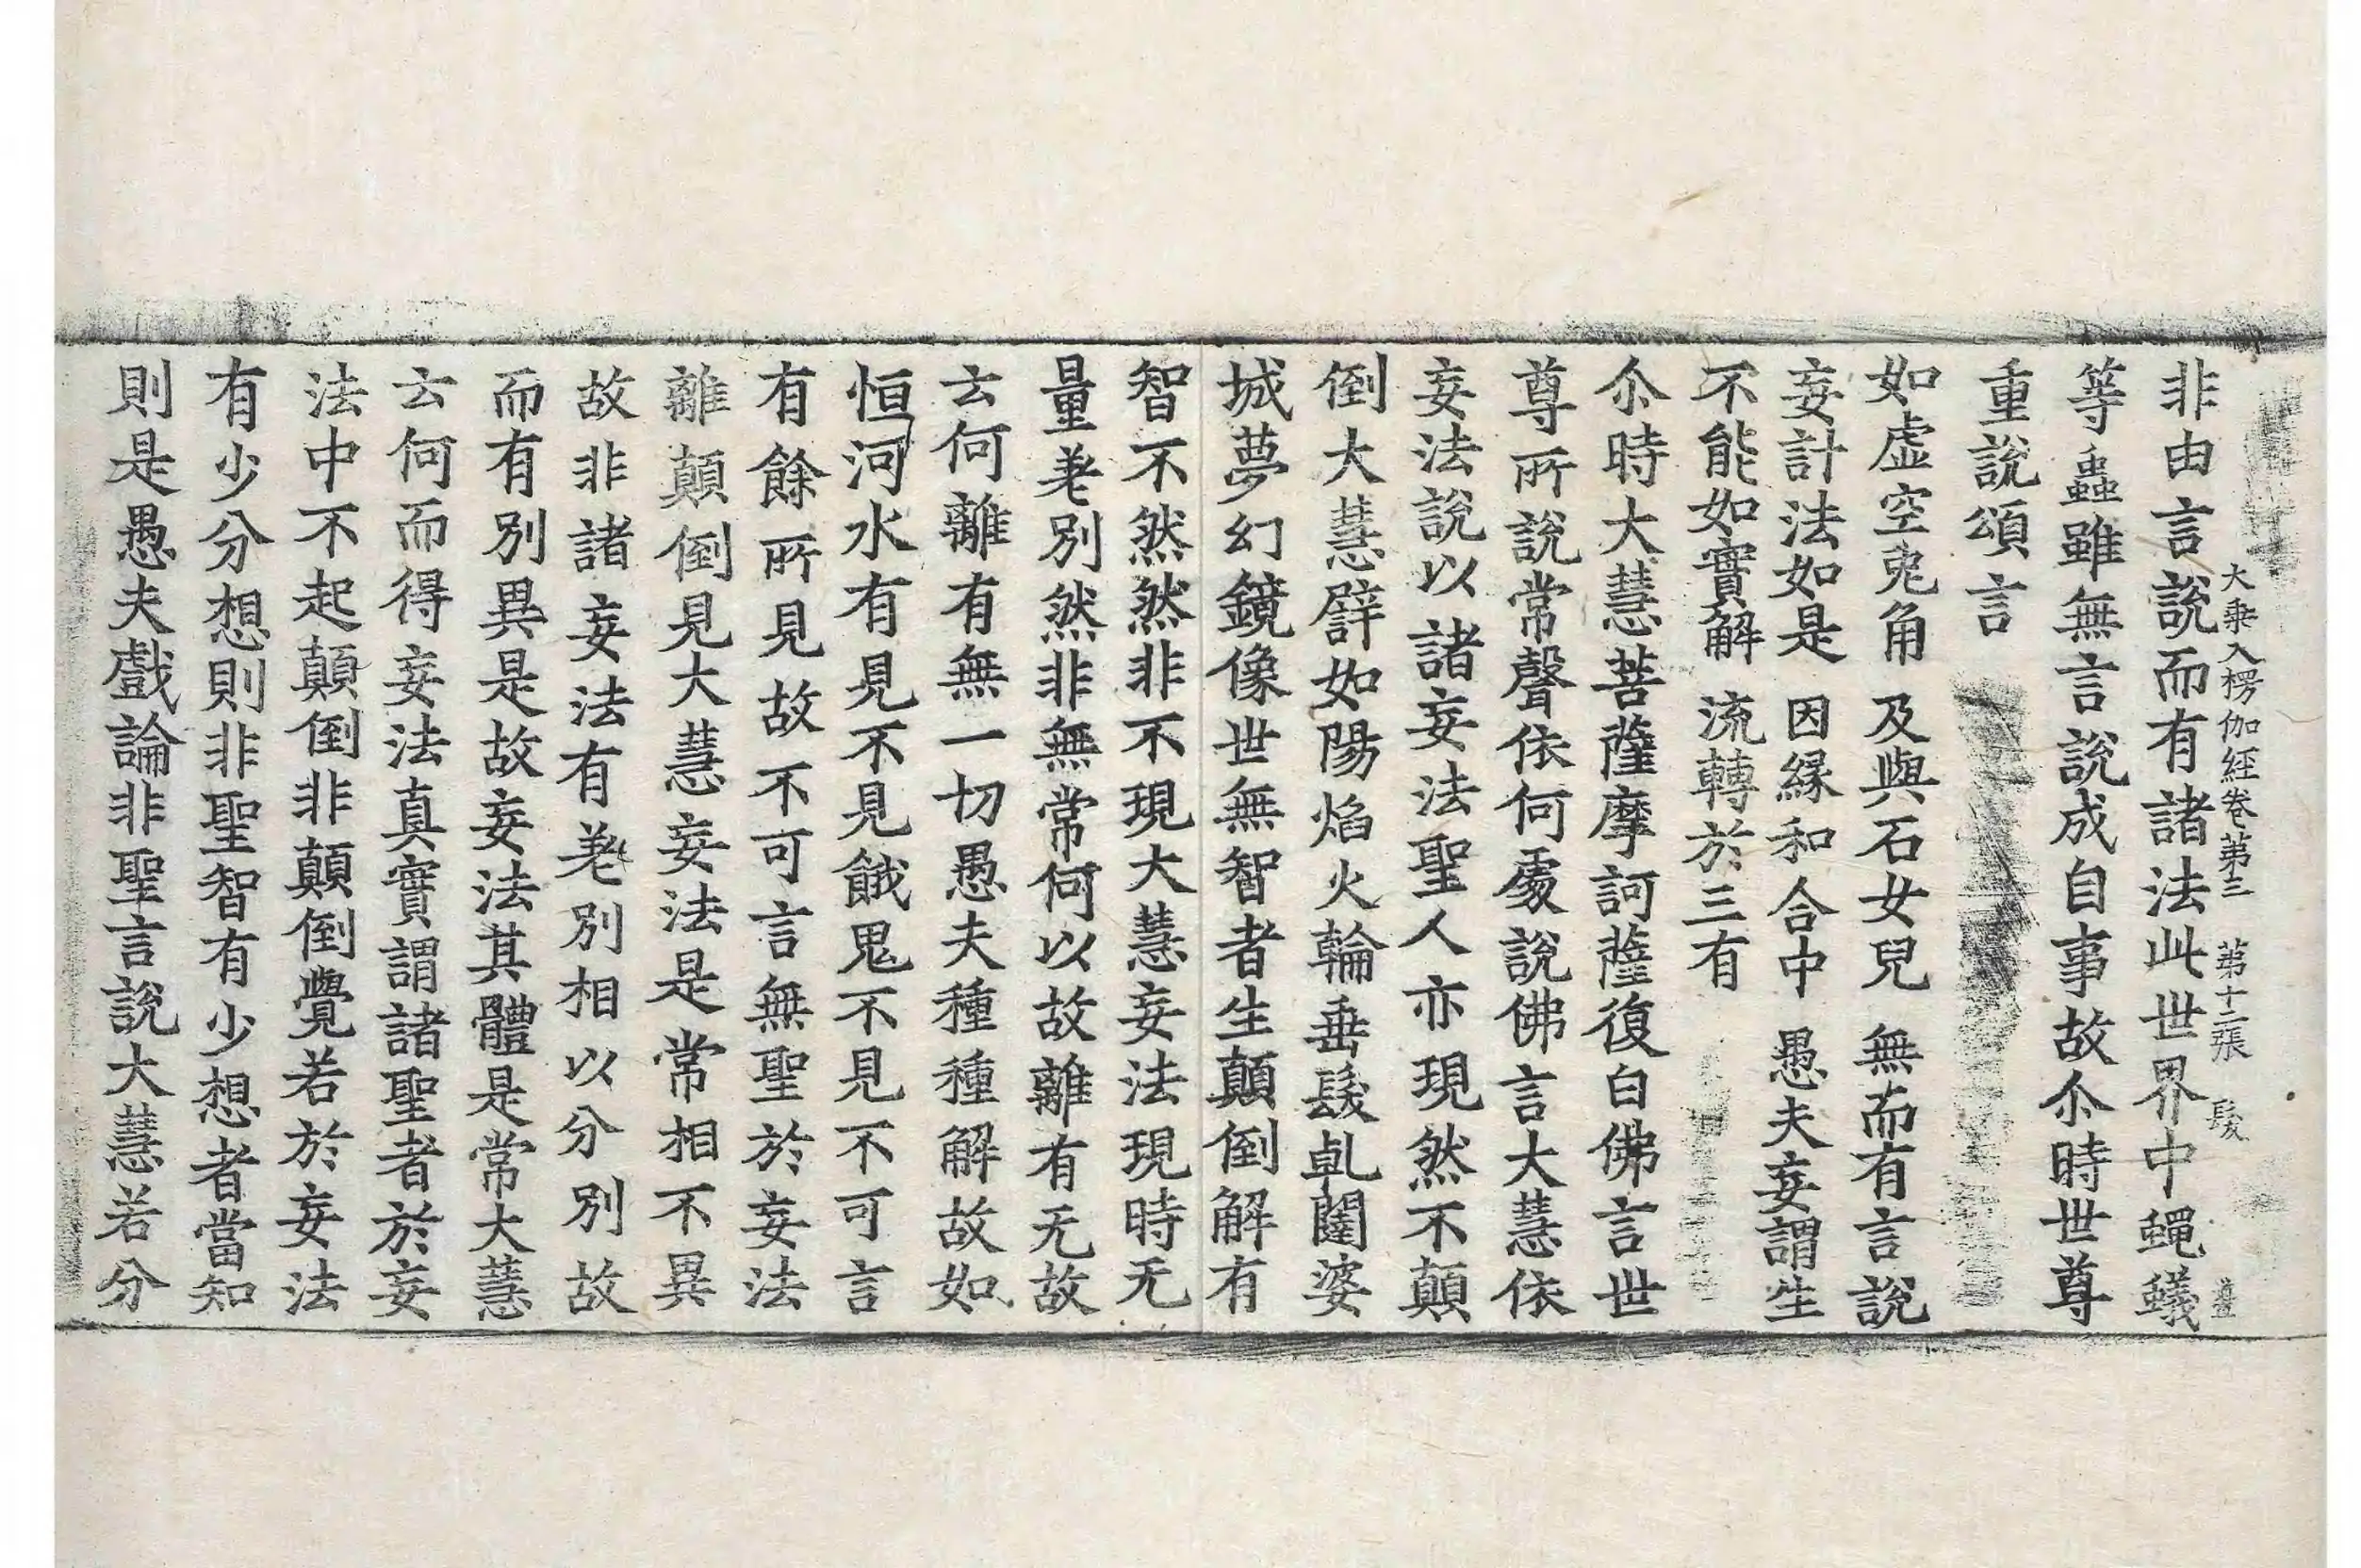 大乗入楞伽經卷第三 第十二張 髮
非由言說而有諸法此世界中蠅蟻
等蟲雖無言說成自事故尒時世尊
重說頌言
如虛空兎角 及與石女兒 無而有言說
妄計法如是 因緣和合中 愚夫妄謂生
不能如實解 流轉於三有
尒時大慧菩薩摩訶薩復白佛言世
尊所說常聲依何處說佛言大慧依
妄法說以諸妄法聖人亦現然不顛
倒大慧譬如陽焰火輪垂髮乹闥婆
城夢幻鏡像世無智者生顛倒解有
智不然然非不現大慧妄法現時无
量差別然非無常何以故離有无故
云何離有無一切愚夫種種解故如
恒河水有見不見餓鬼不見不可言
有餘所見故不可言無聖於妄法
離顛倒見大慧妄法是常相不異
故非諸妄法有差別相以分別故
而有別異是故妄法其體是常大慧
云何而得妄法真實謂諸聖者於妄
法中不起顛倒非顛倒覺若於妄法
有少分想則非聖智有少想者當知
則是愚夫戲論非聖言說大慧若分